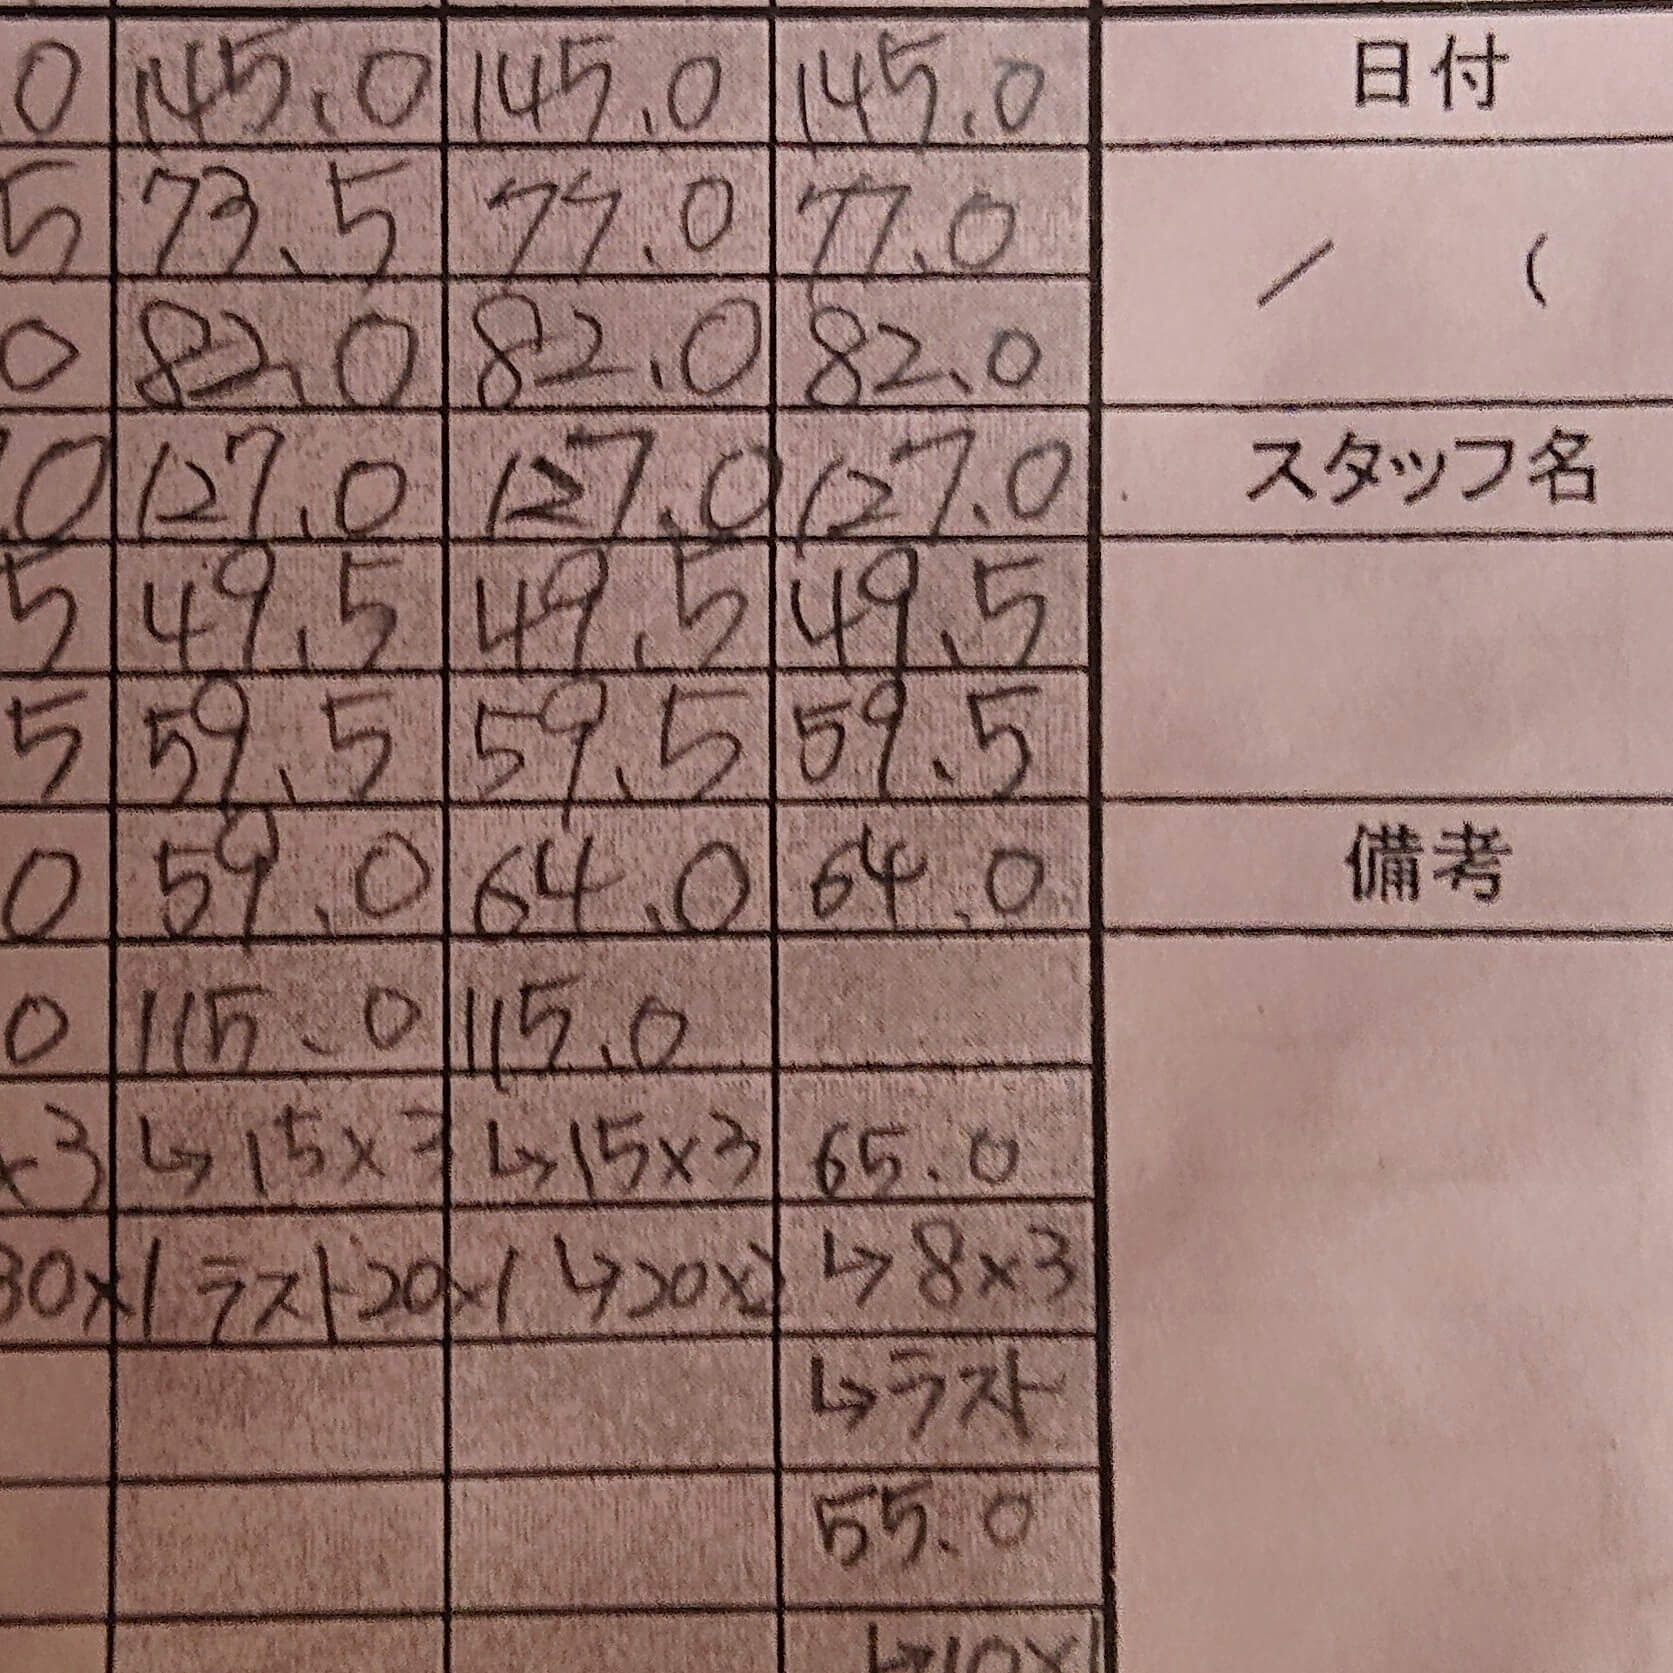 0 145.0 145.0 145.0 日付
5 73.5 77.0 77.0
/ (
0 82.0 82.0 82.0
0 127.0 127.0 127.0 スタッフ名
5 49.5 49.5 49.5
5 59.5 59.5 59.5
0 59.0 64.0 64.0 備考
0 115.0 115.0
x3 ↳15x3 ↳15x3 65.0
30x1 ラスト20x1 ↳20x ↳8x3
↳ラスト
55.0
↳10x1